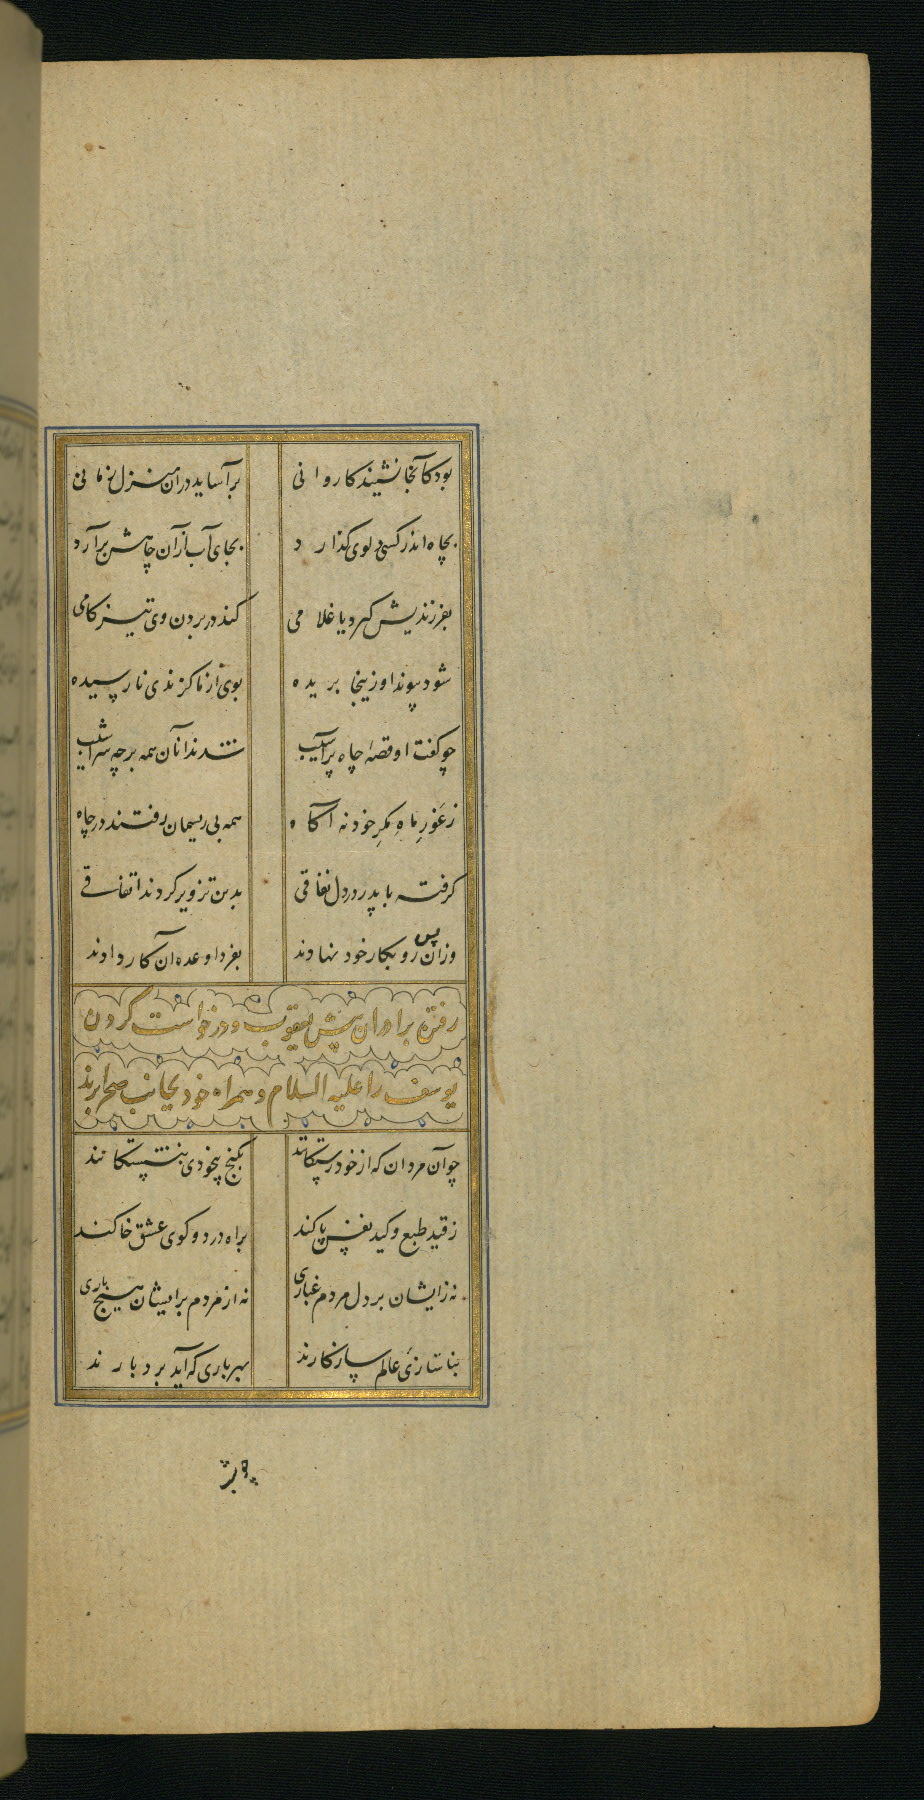 بود کانجا نشیند کاروانی برآساید دران منزل زمانی
بچاه اندر کسی دلوی کذارد بجای آب ازان چاهش برآرد
بفرزندیش کیرد یا غلامی کند در بردن وی تیز کامی
شود پیوند او زینجا بریده بوی از ما کزندی نارسیده
چو کفت او قصهٔ چاه پرآسیب شدند آنان همه برچه سراشیب
ز غور چاه مکر خود نه آکاه همه بی ریسمان رفتند در چاه
کرفته با پدر در دل نفاقی بدین تزویر کردند اتفاقی
وزان پس رو بکار خود نهادند بفردا وعده آن کار دادند
رفتن برادران پیش یعقوب و درخواست کردن
یوسف را علیه السلام و همراه خود بجانب صحرا بردن
چو آن مردان که از خود رستکانند بکنج بیخودی بنشستکانند
ز قید طبع و کید نفس پاکند براه درد و کوی عشق خاکند
نه زایشان بر دل مردم غباری نه از مردم برایشان هیچ باری
بناسازی عالم سازکارند بهر باری که آید بردبارند